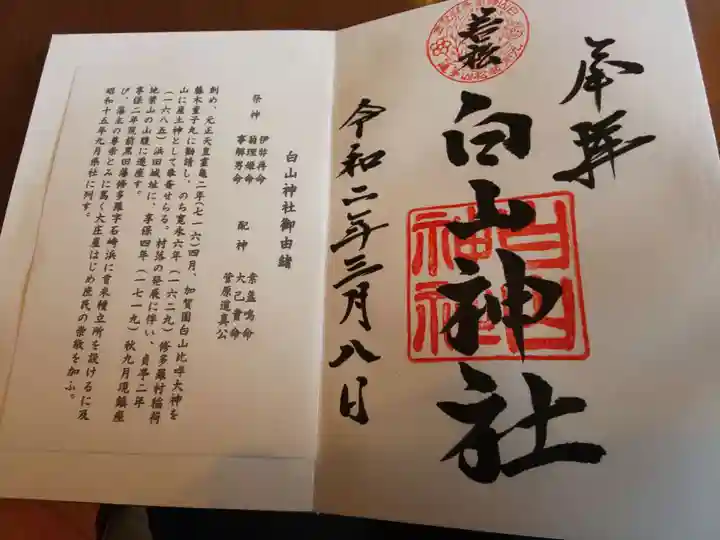 奉拝
白山神社
若松
令和二年三月八日
白山神社
白山神社御由緒
祭神
伊弉冉命
菊理姫命
事解男命
配神
素盞嗚命
大己貴命
菅原道真公
創め、元正天皇霊亀二年(七一六)四月、加賀国白山比咩大神を
藤木童子丸に勧請し、のち寛永六年(一六二九)修多羅村稲荷
山に産土神として奉斎せらる。村落の発展に伴い、貞享二年
(一六八五)浜田城址に、享保四年(一七一九)秋九月現鎮座
地葉山の山腹に遷座す。
享保二年現前黒田藩修多羅字石崎浜に貢米積立所を設けるに及
び、藩主の尊崇とみに篤く大庄屋はじめ庶民の崇敬を加ふ。
昭和十五年九月県社に列す。